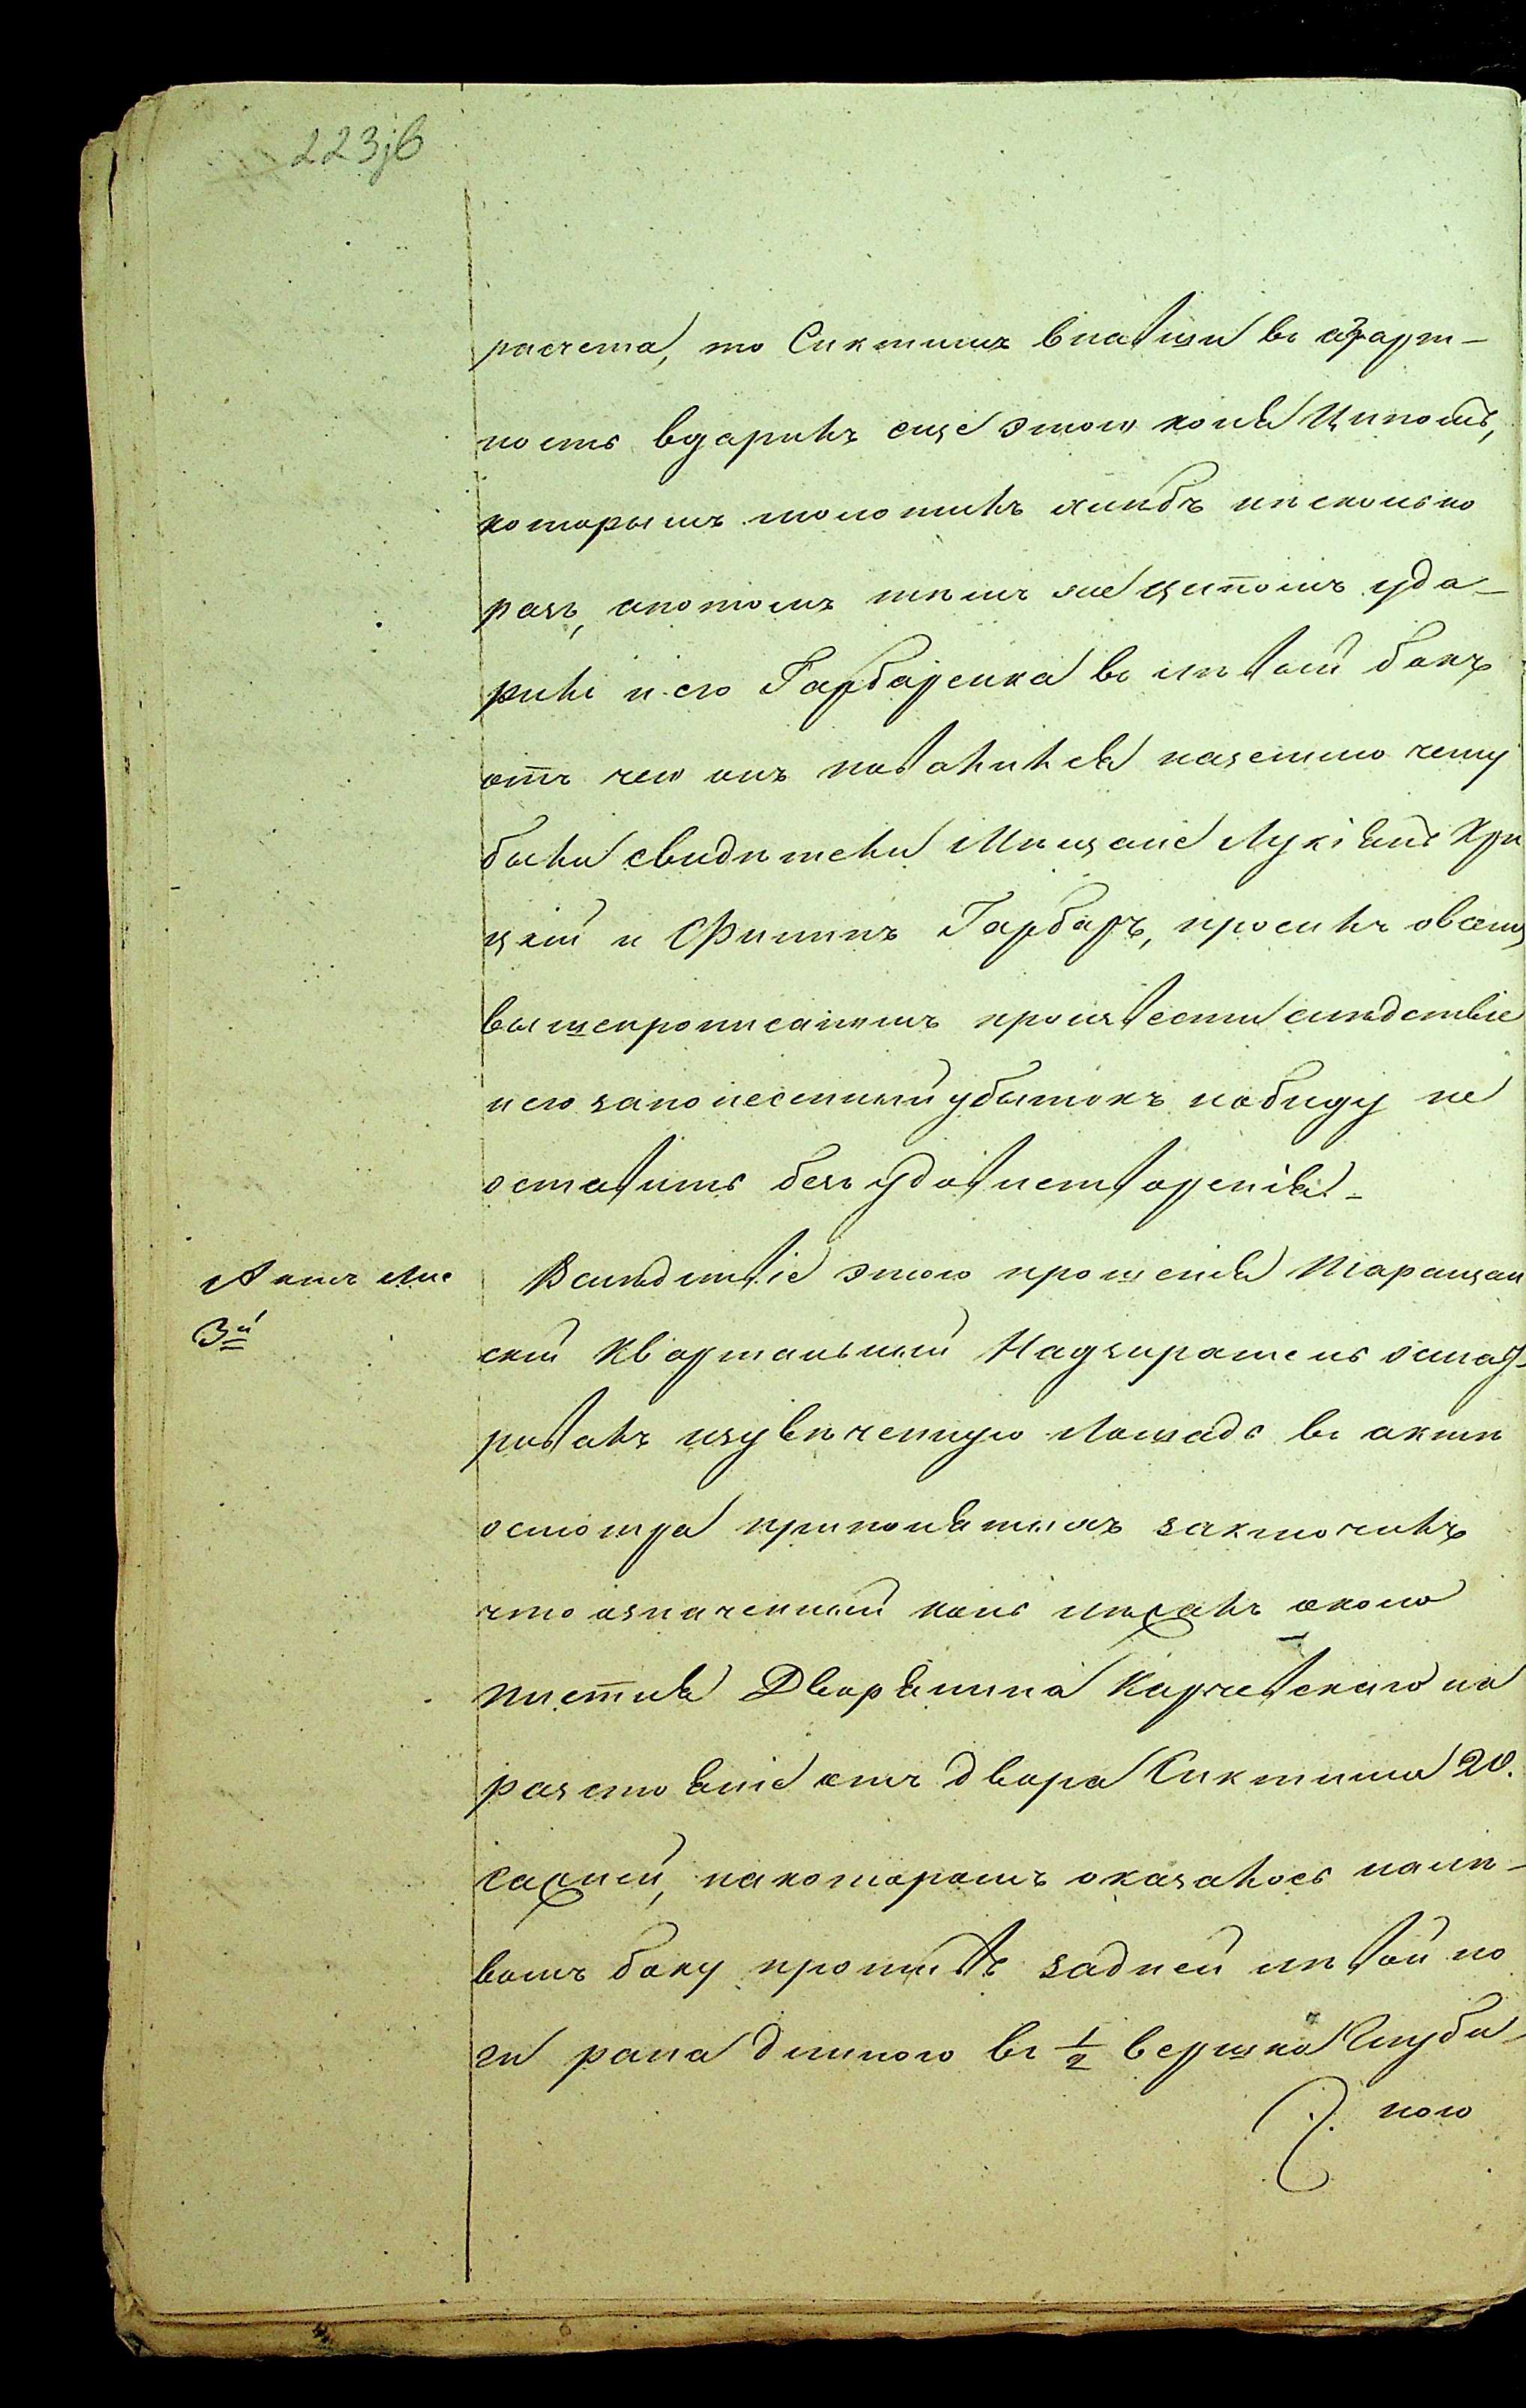 223jб
расчета, то Сиктимъ впавши въ азарт-
ность вдарилъ еще этого коня Ципомъ,
которымъ молотилъ хлѣбъ нѣсколько
разъ, апотомъ тѣмъ же ципомъ уда-
рилъ и его Гарбаренка въ лѣвой бокъ
отъ чего онъ повалился наземлю чему
были свидѣтели Мѣщане Лукіянъ Кри
цкій и Филипъ Гарбаръ, проситъ овсемъ
вышепрописанномъ произвести слѣдствіе
иего запонесенный убытокъ иобиду не
оставить безъ удовлетворенія.-
Актъ лис
3й
Вслѣдствіе этого прошенія Таращан
скій Квартальный Надзиратель осмат-
ривалъ изувѣченную лошадь въ актѣ
осмотра припонятыхъ заключилъ
что означенный конь лежалъ около
плетня Дворянина Карчевскаго на
разстояніе отъ двора Сиктима 20.
саженъ, накоторомъ оказалось налѣ-
вомъ боку противъ задней лѣвой но
ги рана длиною въ 1/2 вершка Глуби-
ною